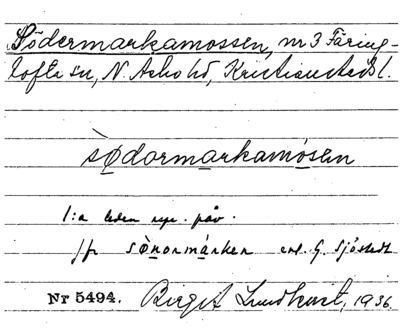 Södermarkamossen, nr 3 Färing-
tofta sn, N. Åsbo hd, Kristianstads l.
sø̀darmarkamósen
1:a leden repr. påv.
jfr sø̀normárken enl. G. Sjöstedt
Nr 5494. Birgit Lundkvist, 1936